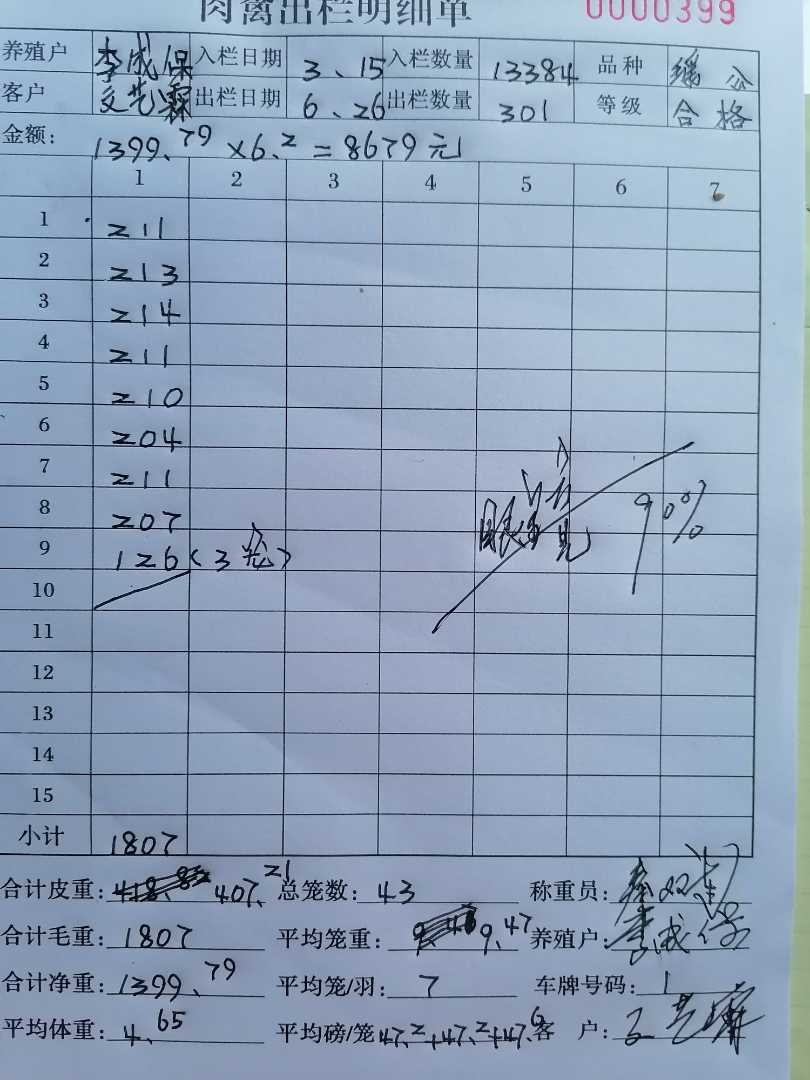 肉禽出栏明细单 0000399
养殖户 李成保 入栏日期 3、15 入栏数量 13384 品种
客户 出栏日期 6、26 出栏数量 301 等级 合格
金额: 1399.79×6.2=8679元
1 2 3 4 5 6 7
1 211
2 213
3 214
4 211
5 210
6 204
7 211
8 207
9 126(3笼)
90%
10
11
12
13
14
15
小计 1807
合计皮重: 407.21 总笼数: 43 称重员:
合计毛重: 1807 平均笼重: 9.47 养殖户: 李成保
合计净重: 1399.79 平均笼/羽: 7 车牌号码: 1
平均体重: 4.65 平均磅/笼 47.2+47.2+47.6 客 户: